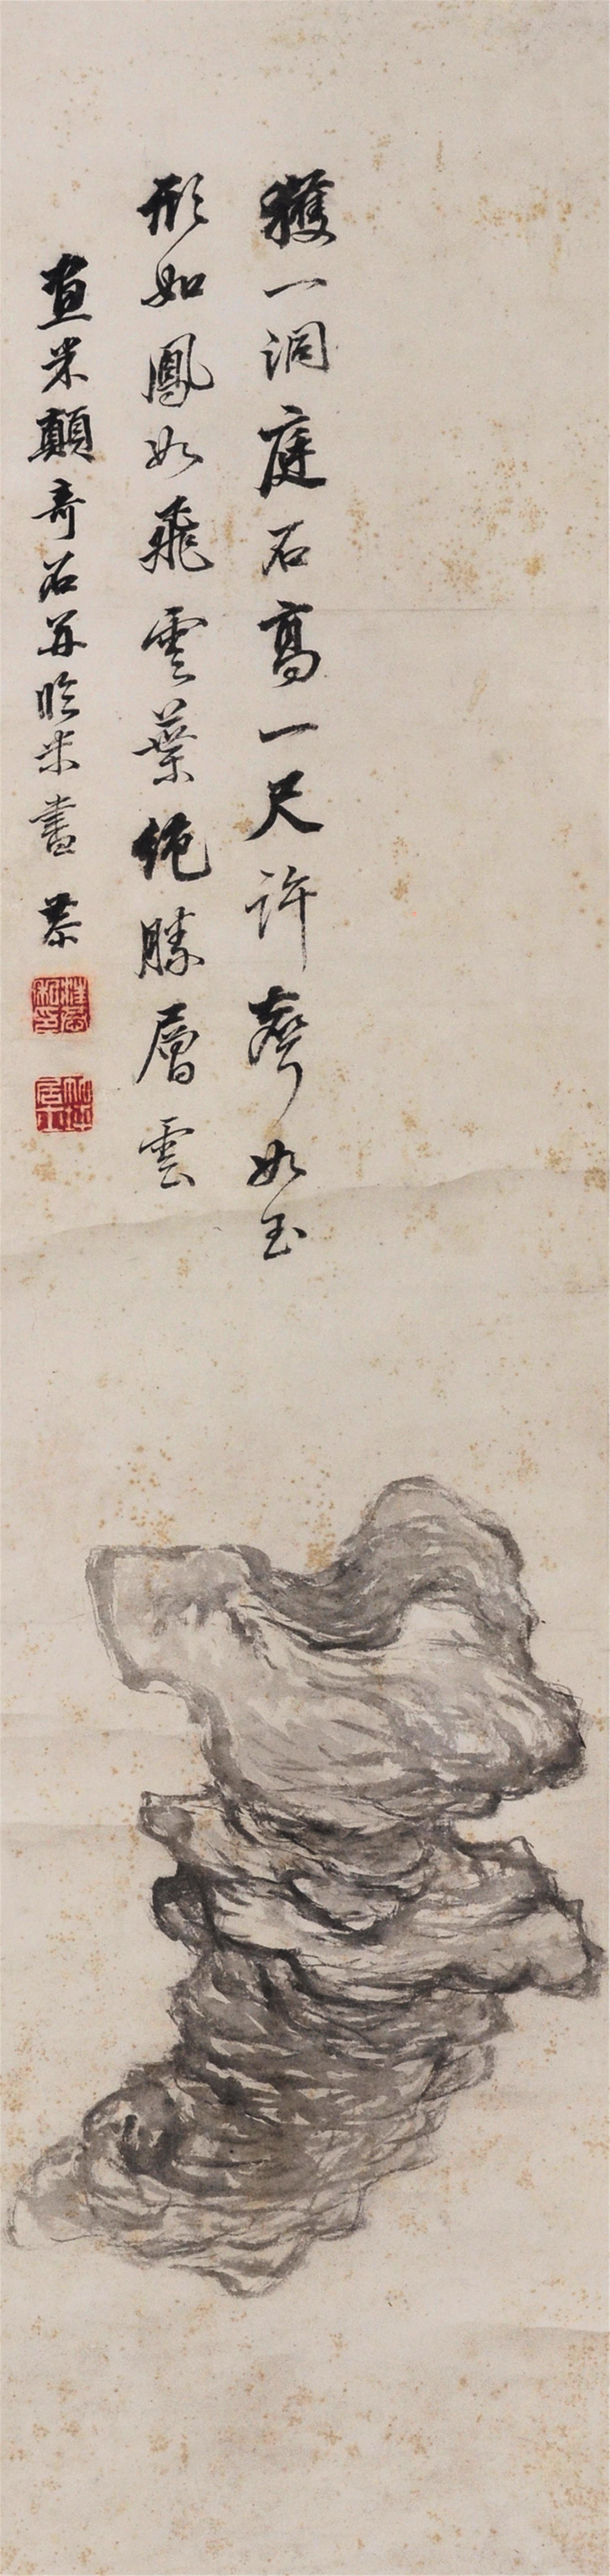 獲一洞庭石高一尺許聲如玉
形如鳳如飛雲葉絶勝層雲
畫米顛奇石并臨米書 恭